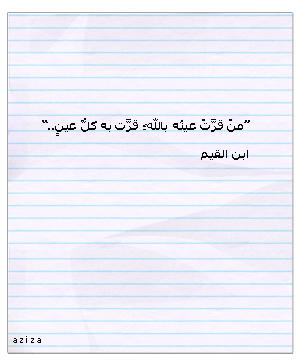 "منْ قرَّتْ عينُه باللّهِ قرَّت به كلُّ عينٍ.."
ابن القيم
aziza